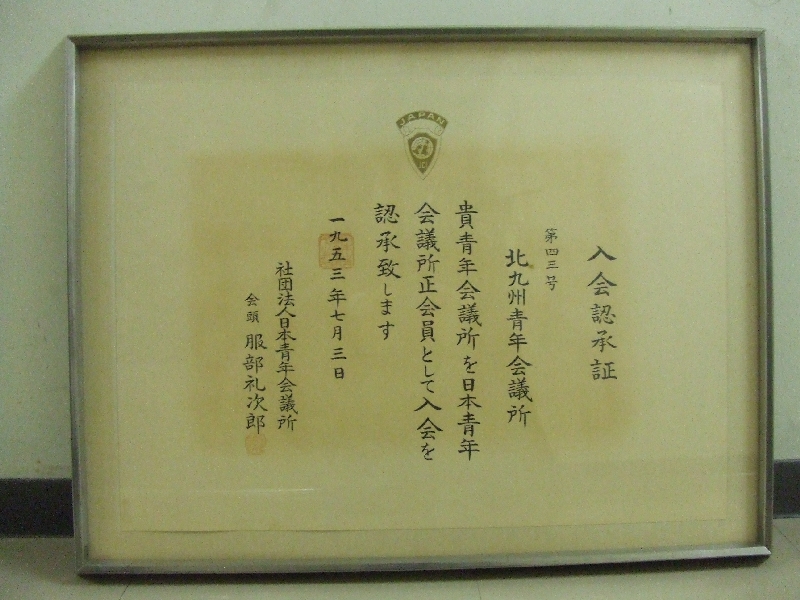 JAPAN
JC
入会認承証
第四三号
北九州青年会議所
貴青年会議所を日本青年
会議所正会員として入会を
認承致します
一九五三年七月三日
社団法人日本青年会議所
会頭 服部礼次郎